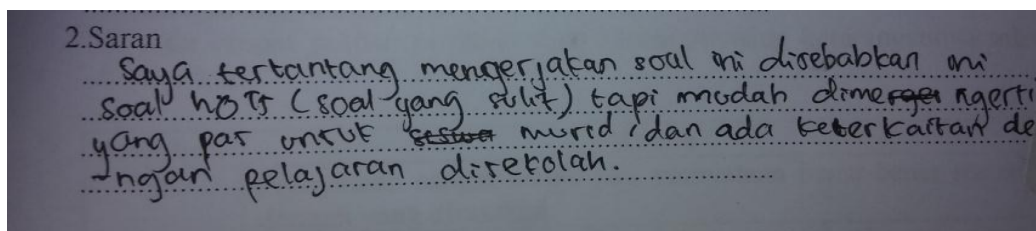 2.Saran
Saya tertantang mengerjakan soal ini disebabkan ini
soal hoTs (soal yang sulit) tapi mudah dimengerti
yang pas untuk murid, dan ada keterkaitan de
-ngan pelajaran disekolah.